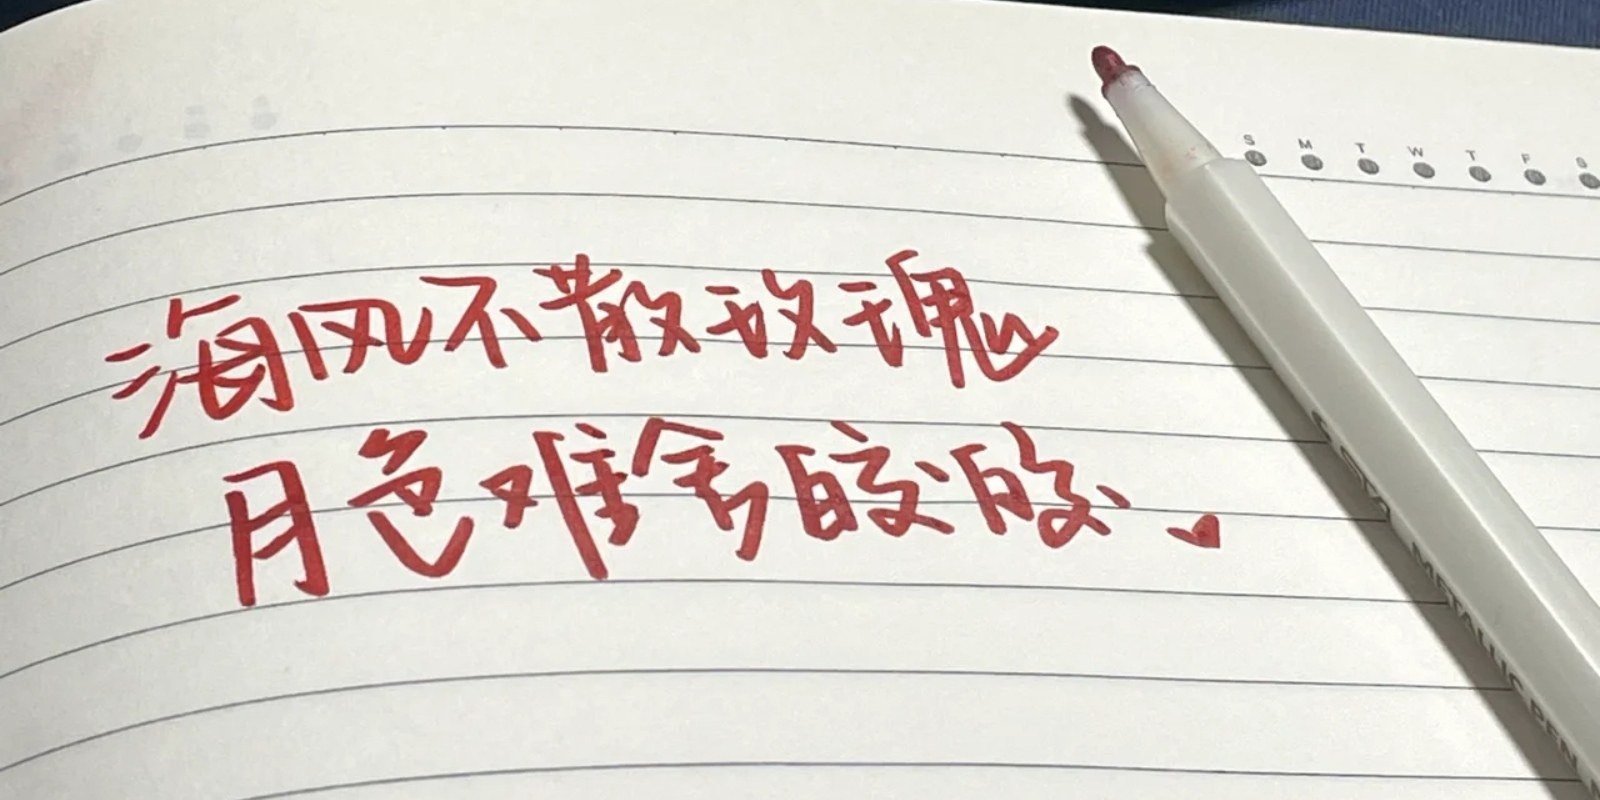 S M T W T F S
海风不散玫瑰
月色难舍皎皎
METALLIC PEN